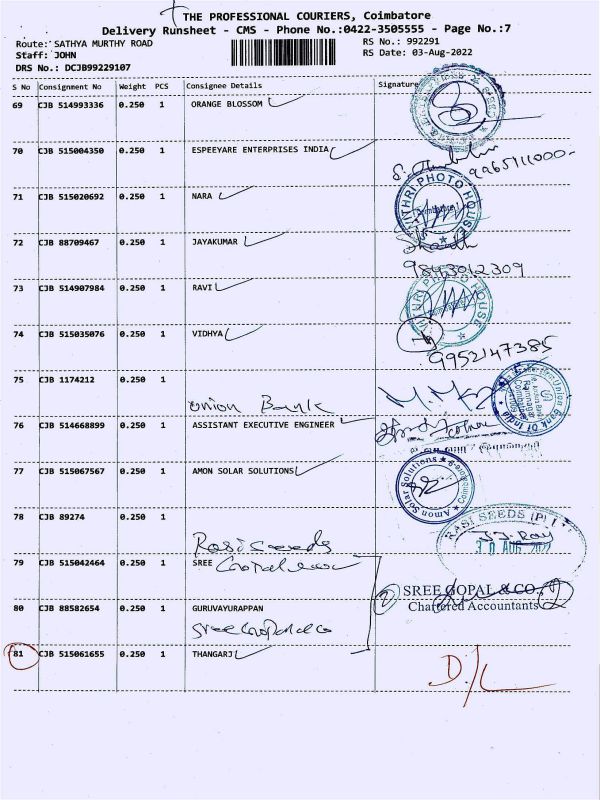 THE PROFESSIONAL COURIERS, Coimbatore
Delivery Runsheet - CMS - Phone No.:0422-3505555 - Page No.:7
Route: SATHYA MURTHY ROAD
RS No.: 992291
Staff: JOHN
RS Date: 03-Aug-2022
DRS No.: DCJB99229107
S No Consignment No Weight PCS Consignee Details Signature
69 CJB 514993336 0.250 1 ORANGE BLOSSOM
70 CJB 515004350 0.250 1 ESPEEYARE ENTERPRISES INDIA
9965711000-
71 CJB 515020692 0.250 1 NARA
PHOTO HOUSE
72 CJB 88709467 0.250 1 JAYAKUMAR
9843012309
73 CJB 514907984 0.250 1 RAVI
PHOTO HOUSE
74 CJB 515035076 0.250 1 VIDHYA
9952147385
75 CJB 1174212 0.250 1
Union Bank
Union Bank Of India
76 CJB 514668899 0.250 1 ASSISTANT EXECUTIVE ENGINEER
77 CJB 515067567 0.250 1 AMON SOLAR SOLUTIONS
Amon Solar Solutions
78 CJB 89274 0.250 1
Rasi Seeds
RASI SEEDS (P) L
30 AUG 2022
79 CJB 515042464 0.250 1 SREE
SREE GOPAL & CO.,
Chartered Accountants
80 CJB 88582654 0.250 1 GURUVAYURAPPAN
Sree Gopal & Co
81 CJB 515061655 0.250 1 THANGARJ
D/L